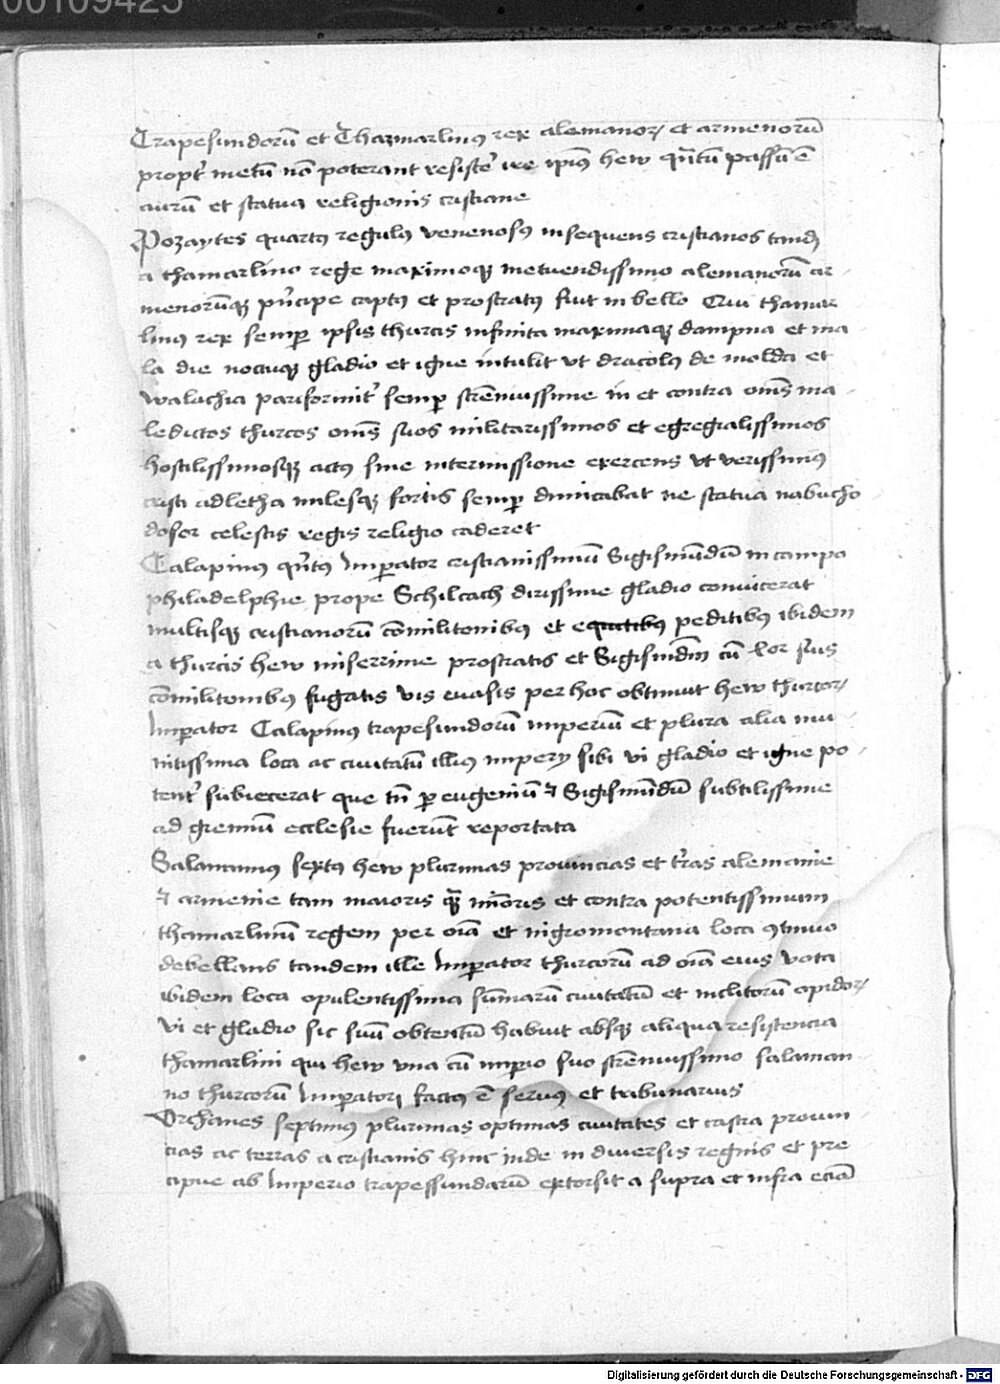 00109425
Trapesundorū et Thazmarlinꝯ rex alemanoꝝ et armenorū
propt' metū nō poterant resiste' ire ipiꝯ hew qn̄tū passū ē
aurū et statua religionis cristiane
Pozaytes quartꝯ regulꝯ venenosꝯ insequens cristianos tandē
a thamarlino rege maximoqꝫ metuendissimo alemanorū ar
menorūqꝫ pn̄cipe captꝯ et prostratꝯ fuit in bello Qui thamar
linꝯ rex semꝑ ipsis thurcis infinita maximaqꝫ dampna et ma
la die noctuqꝫ gladio et igne intulit vt dracolꝯ de molda et
walachia pariformit' semꝑ strēnuissime in et contra om̄s ma
ledictos thurcos om̄s suos militarissimos et egregialissimos
hostilissimosqꝫ actꝯ sine intermissione exercens vt verissimꝯ
cristi adletha milesqꝫ fortis semꝑ dimicabat ne statua nabucho
dosor celestis regis religio caderet
Calapinꝯ qn̄tꝯ Imꝑator cristianissimū Sigismūdū in campo
philadelphie prope Schilcach dirissime gladio conuicerat
multisqꝫ cristianorū cōmilitonibꝯ et equitibꝯ peditibꝯ ibidem
a thurcis hew miserrime prostratis et Sigismūdm cū
cōmilitonibꝯ fugatis vis euasis per hoc obtinuit hew thurcoꝝ
Imꝑator Calapinꝯ trapesundorū imperiū et plura alia mu
nitissima loca ac ciuitatū illiꝯ impery sibi vi gladio et igne po
tent' subiecerat que tn̄ ꝑ eugeniū ⁊ Sigismūdū subtilissime
ad gremiū ecclesie fuerūt reportata
Salamanꝯ sextꝯ hew plurimas prouincias et t'ras alemanie
⁊ armenie tam maioris qꝫ mīoris et contra potentissimum
thamarlinū regem per oīa et nigromontana loca ꝯtinuo
debellans tandem ille Imꝑator thurcorū ad oīa eius vota
ibidem loca opulentissima sūmarū ciuitatū et inclitorū opidoꝝ
vi et gladio sic suū obtentū habuit absqꝫ aliqua resistencia
thamarlini qui hew vna cū imꝑio suo strēnuissimo salaman
no thurcorū Imꝑatori factꝯ ē seruꝯ et tributarius
Orchanes septimꝯ plurimas optimas ciuitates et castra prouin
cias ac terras a cristianis hinc inde in diuersis regnis et pre
cipue ab Imperio trapessundarū extorsit a supra et infra eciā
Digitalisierung gefördert durch die Deutsche Forschungsgemeinschaft - DFG